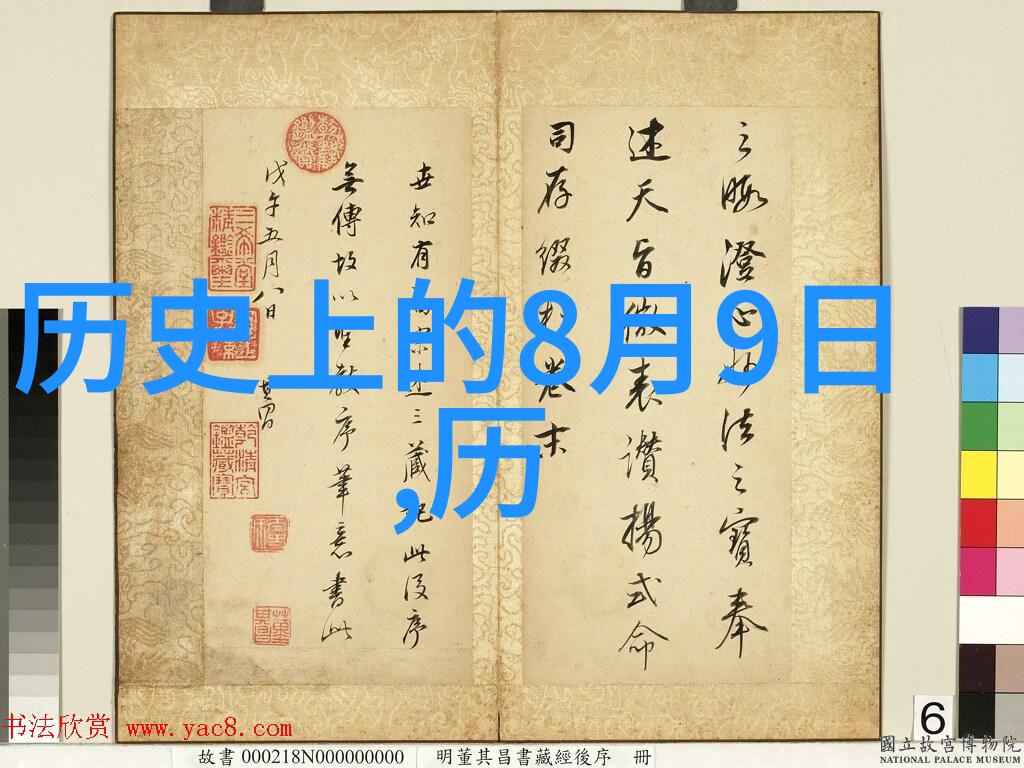 历史上的8月9日
,历
之晦澄心妙法之寶奉
述天旨微表讚揚式命
司存綴於卷末
世知有述三藏記此後序
無傳故以聖教序筆意書此
戊午五月八日
其昌
三希堂精鑑璽
书法欣赏 www.yac8.com
故書 000218N000000000 明董其昌書藏經後序 冊
6
國立故宮博物院
NATIONAL PALACE MUSEUM